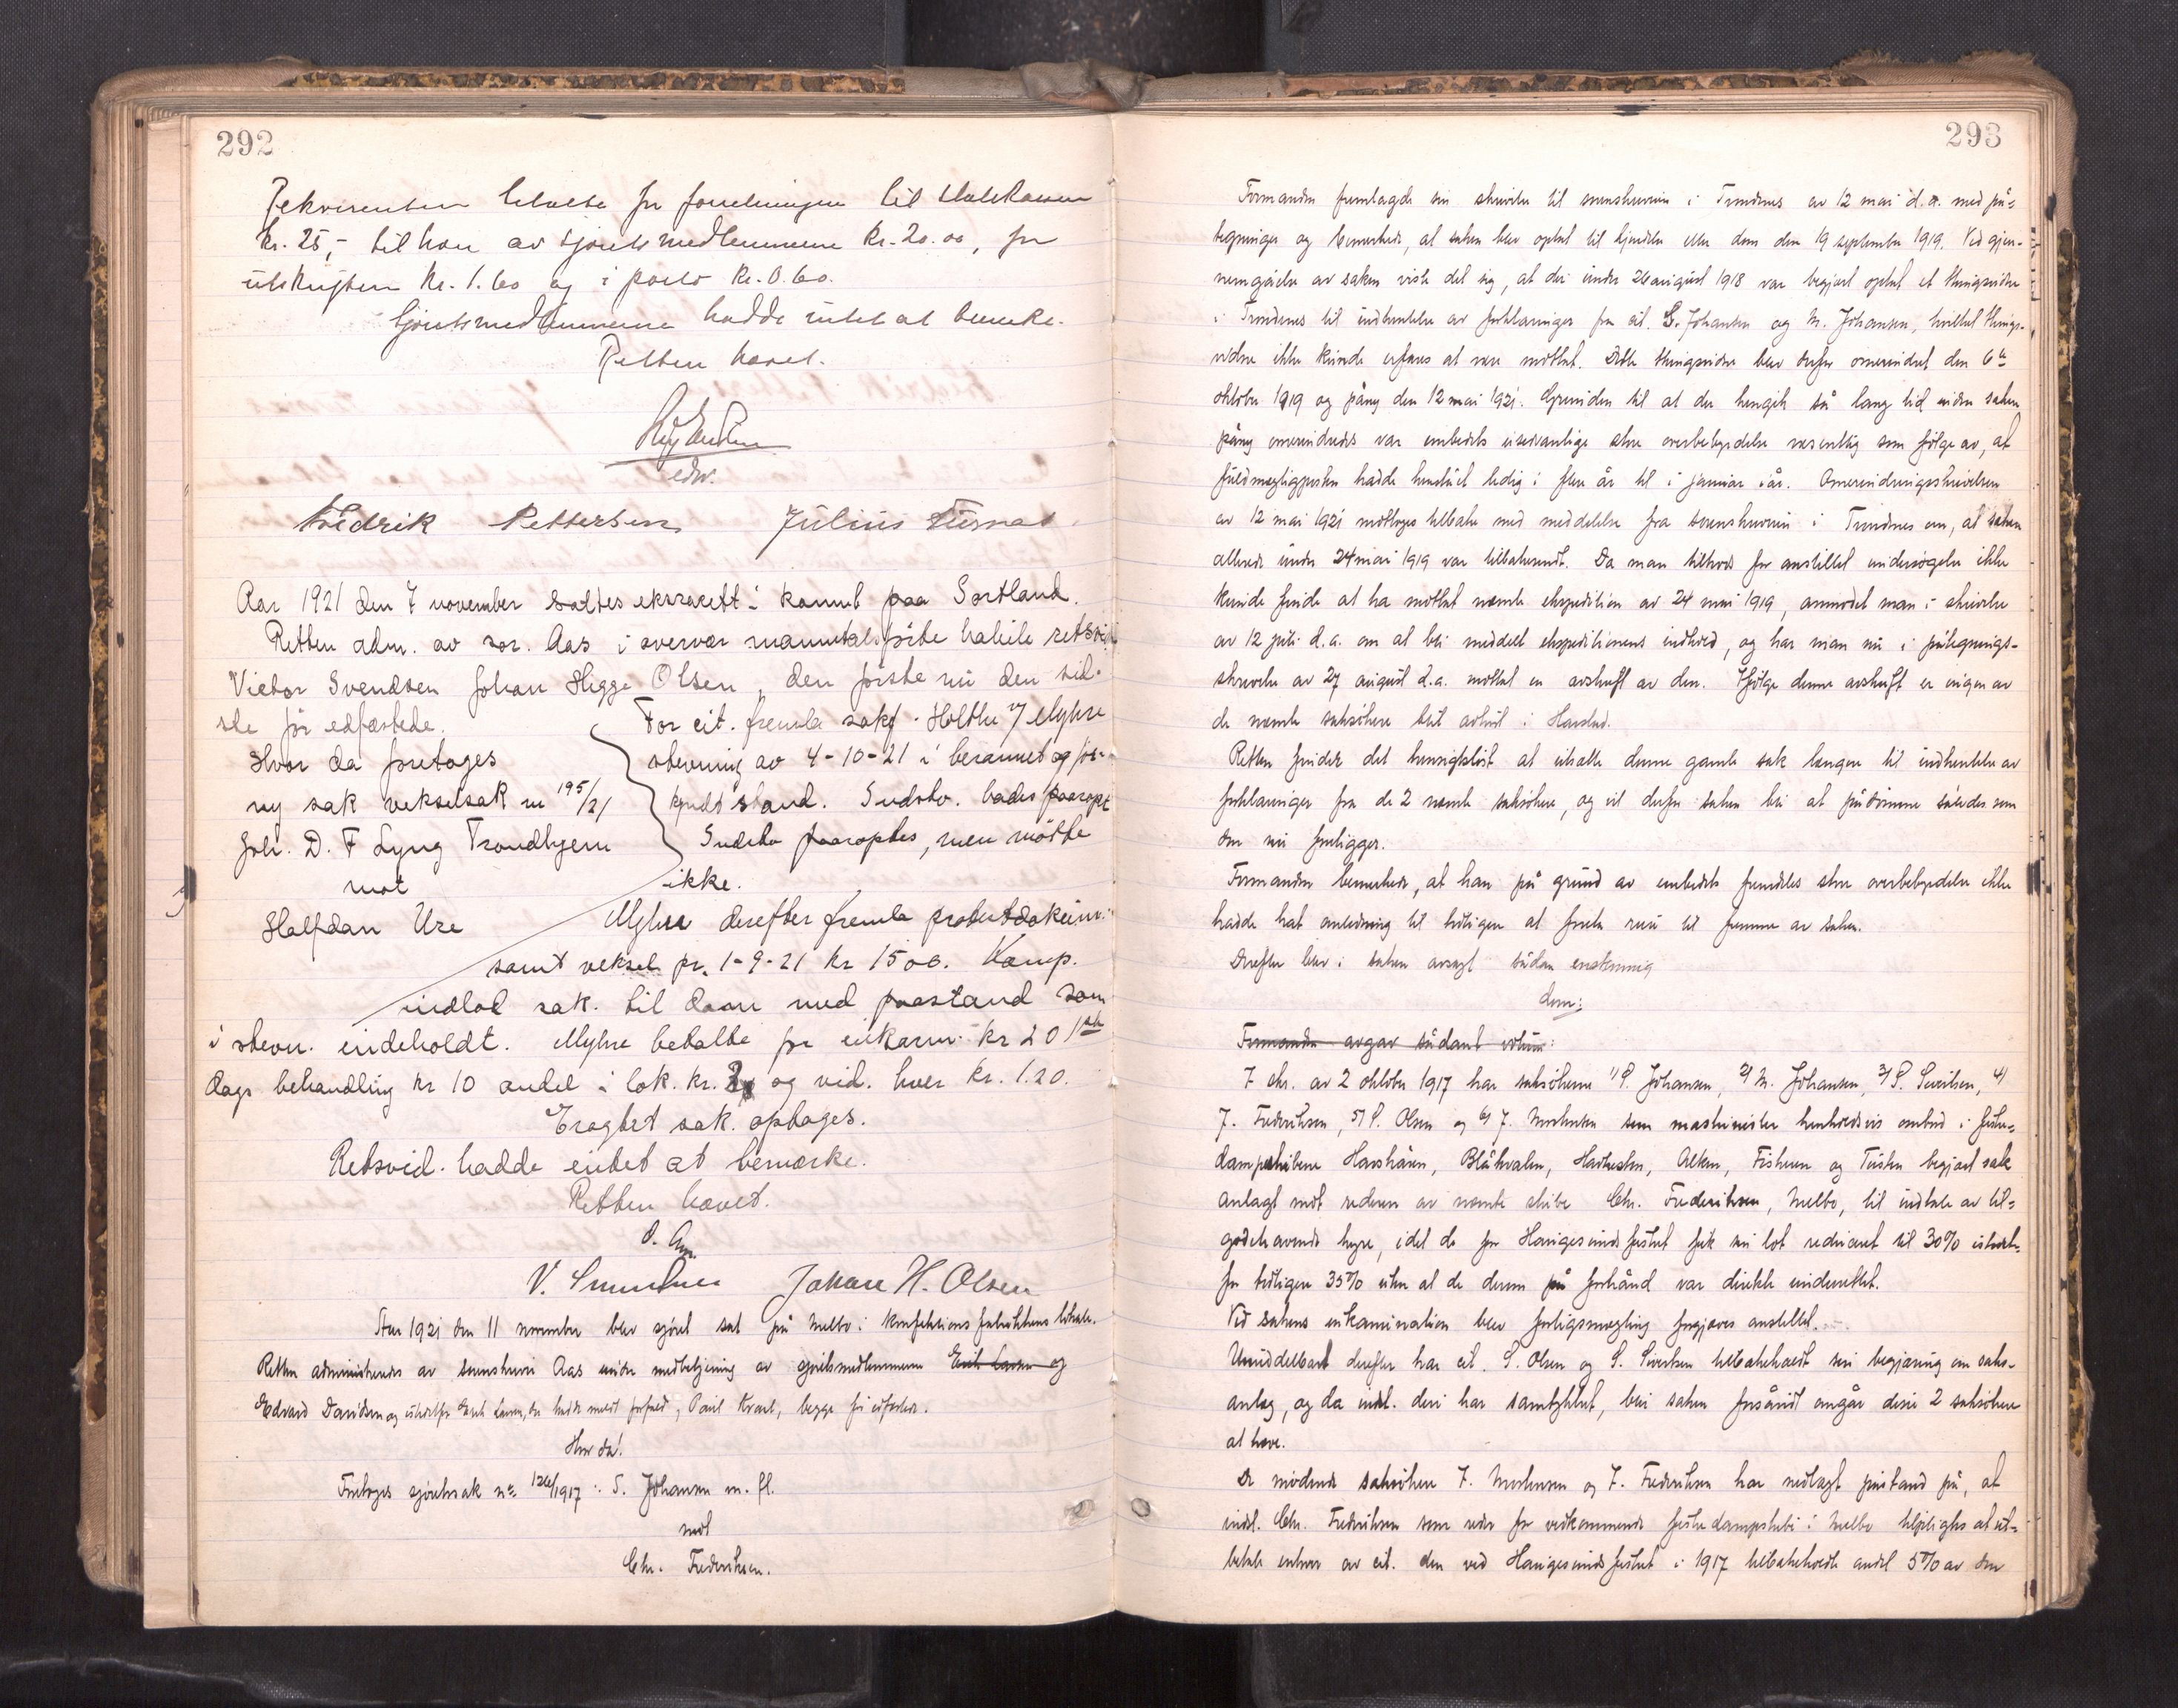 292
Rekvirenten betalte for forretningen til statskassen
kr. 25,- til hver av sjøretsmedlemmene kr. 20.00, for
utskriften kr. 1.60 og i porto kr. 0.60.
Sjøretsmedlemmerne hadde intet at bemerke.
Retten hævet.
edsv.
Fredrik Pettersen Julius
Aar 1921 den 7 november holdtes ekstrarett i kontoret paa Sortland.
Retten adm. av sor. Aas i overvær manntalsførte habile retsvid.
Victor Svendsen Johan Higge Olsen, den første nu den sid-
ste før edfæstede.
Hvor da foretoges
ny sak vekselsak nr 195/21
Joh. D. F Lyng Trondhjem
mot
Halfdan Ure
For cit. fremla sakf. Holthe v/ Myhre
stevning av 4-10-21 i berammet og for-
kyndt stand. Indstv. bades paaropt
Indstv paaroptes, men møtte
ikke.
Myhre derefter fremla protestdokum.
samt veksel pr. 1-9-21 kr 1500. Komp.
indlod sak. til dom med paastand som
i stevn. indeholdt. Myhre betalte for inkam. kr 20 1ste
dags behandling kr 10 andel i lok. kr. 2 og vid. hver kr. 1.20.
Eragtet sak. optages.
Retsvid. hadde intet at bemerke.
Retten hævet.
O. Aas
V. Svendsen Johan H. Olsen
Aar 1921 den 11 november blev sjøret sat på Melbo i konfektionsfabrikkens lokale.
Retten administrertes av sorenskriver Aas under medbetjening av sjøretsmedlemmerne Erik Larsen og
Edvard Davidsen og istedetfor Erik Larsen, der hadde meldt forfald, Paul Kræmt, begge før edfæstede.
Hvor da:
Foretoges sjøretssak nr. 126/1917: S. Johansen m. fl.
mot
Chr. Frederiksen.
293
Formanden fremlagde sin skrivelse til sorenskriveren i Trondenes av 12 mai d.a. med på-
tegninger og bemerkede, at saken blev optat til kjendelse eller dom den 19 september 1919. Ved gjen-
nemgåelse av saken viste det sig, at der under 26 august 1918 var begjært optat et thingsvidne
i Trondenes til indhentelse av forklaringer fra cit. S. Johansen og M. Johansen, hvilket things-
vidne ikke kunde erfares at være mottat. Dette thingsvidne blev derfor omerindret den 6te
oktober 1919 og påny den 12 mai 1921. Grunden til at der hengik så lang tid inden saken
påny omerindredes var embedets usedvanlige store overbebyrdelse væsentlig som følge av, at
fuldmægtigposten hadde henstået ledig i flere år til i januar iår. Omerindringsskrivelsen
av 12 mai 1921 mottoges tilbake med meddelelse fra sorenskriveren i Trondenes om, at saken
allerede under 24 mai 1919 var tilbakesendt. Da man tiltrods for anstillet undersøgelse ikke
kunde finde at ha mottat nævnte ekspedition av 24 mai 1919, anmodet man i skrivelse
av 12 juli d.a. om at bli meddelt ekspeditionens indhold, og har man nu i påtegnings-
skrivelse av 27 august d.a. mottat en avskrift av den. Ifølge denne avskrift er ingen av
de nævnte saksøkere blit avhørt i Harstad.
Retten finder det hensigtsløst at utsætte denne gamle sak længere til indhentelse av
forklaringer fra de 2 nævnte saksøkere, og vil derfor saken bli at pådømme således som
den nu foreligger.
Formanden bemerkede, at han på grund av embedets fremdeles store overbebyrdelse ikke
hadde hat anledning til tidligere at foreta noe til fremme av saken.
Derefter blev i saken avsagt sådan enstemmig
dom:
Formanden avgav sådant votum:
I skr. av 2 oktober 1917 har saksøkerne 1) S. Johansen, 2) M. Johansen, 3) S. Sivertsen, 4)
J. Frederiksen, 5) S. Olsen og 6) J. Mortensen som maskinister henholdsvis ombord i fiske-
dampskibene Havskåren, Blåhvalen, Havhesten, Alken, Fiskeren og Teisten begjært sak
anlagt mot rederen av nævnte skibe Chr. Frederiksen, Melbo, til indtale av til-
godehavende hyre, idet de for Haugesundsfisket fik sin lot redusert til 30% istedet-
for tidligere 35% uten at de derom på forhånd var direkte underrettet.
Ved sakens inkamination blev forligsmægling forgjæves anstillet.
Umiddelbart derefter har cit. S. Olsen og S. Sivertsen tilbakekaldt sin begjæring om saks-
anlæg, og da indst. deri har samtykket, blir saken forsåvidt angår disse 2 saksøkere
at hæve.
De møtende saksøkere J. Mortensen og J. Frederiksen har nedlagt påstand på, at
indst. Chr. Frederiksen som reder for vedkommende fiskedampskibe i Melbo tilpligtes at ut-
betale enhver av cit. den ved Haugesundsfisket i 1917 tilbakeholdte andel 5% av den